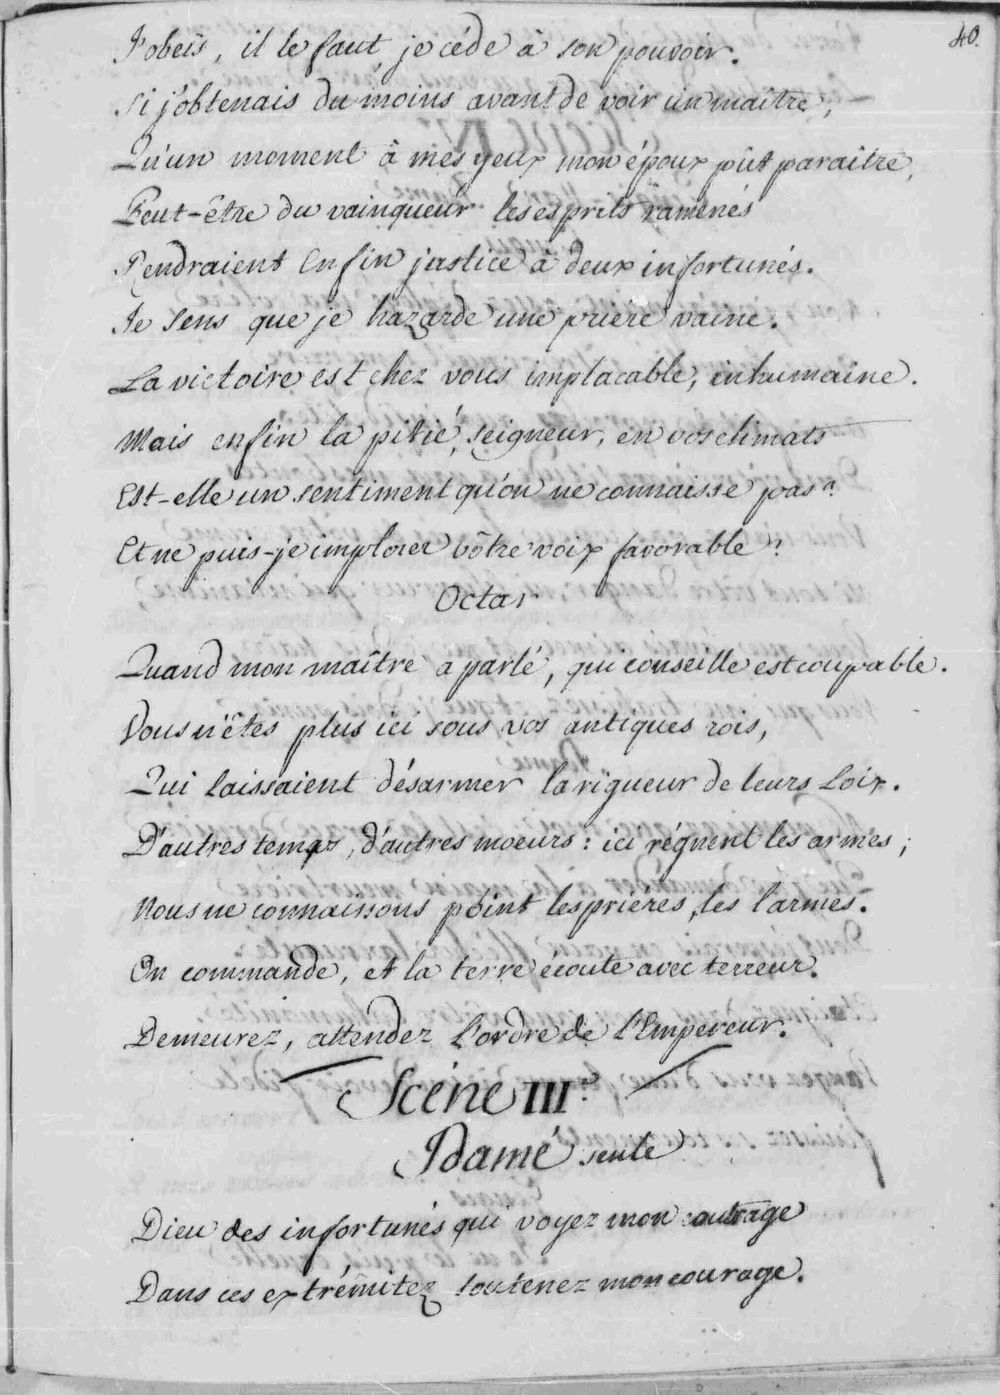 40.
J'obeïs, il le faut, je céde à son pouvoir.
Si j'obtenais du moins avant de voir un maître,
Qu'un moment à mes yeux mon époux pût paraître,
Peut-être du vainqueur les esprits ramenés
Rendraient enfin justice à deux infortunés.
Je sens que je hazarde une priere vaine.
La victoire est chez vous implacable, inhumaine.
Mais enfin la pitié, seigneur, en vos climats
Est-elle un sentiment qu'on ne connaisse pas?
Et ne puis-je implorer vôtre voix favorable?
Octar
Quand mon maître a parlé, qui conseille est coupable.
Vous n'êtes plus ici sous vos antiques rois,
Qui laissaient désarmer la rigueur de leurs Loix.
D'autres temps, d'autres moeurs: ici régnent les armes;
Nous ne connaissons point les priéres, les larmes.
On commande, et la terre écoute avec terreur.
Demeurez, attendez l'ordre de l'Empereur.
Scéne III.e
Idamé seule
Dieu des infortunés qui voyez mon outrage
Dans ces extrémitez soutenez mon courage.